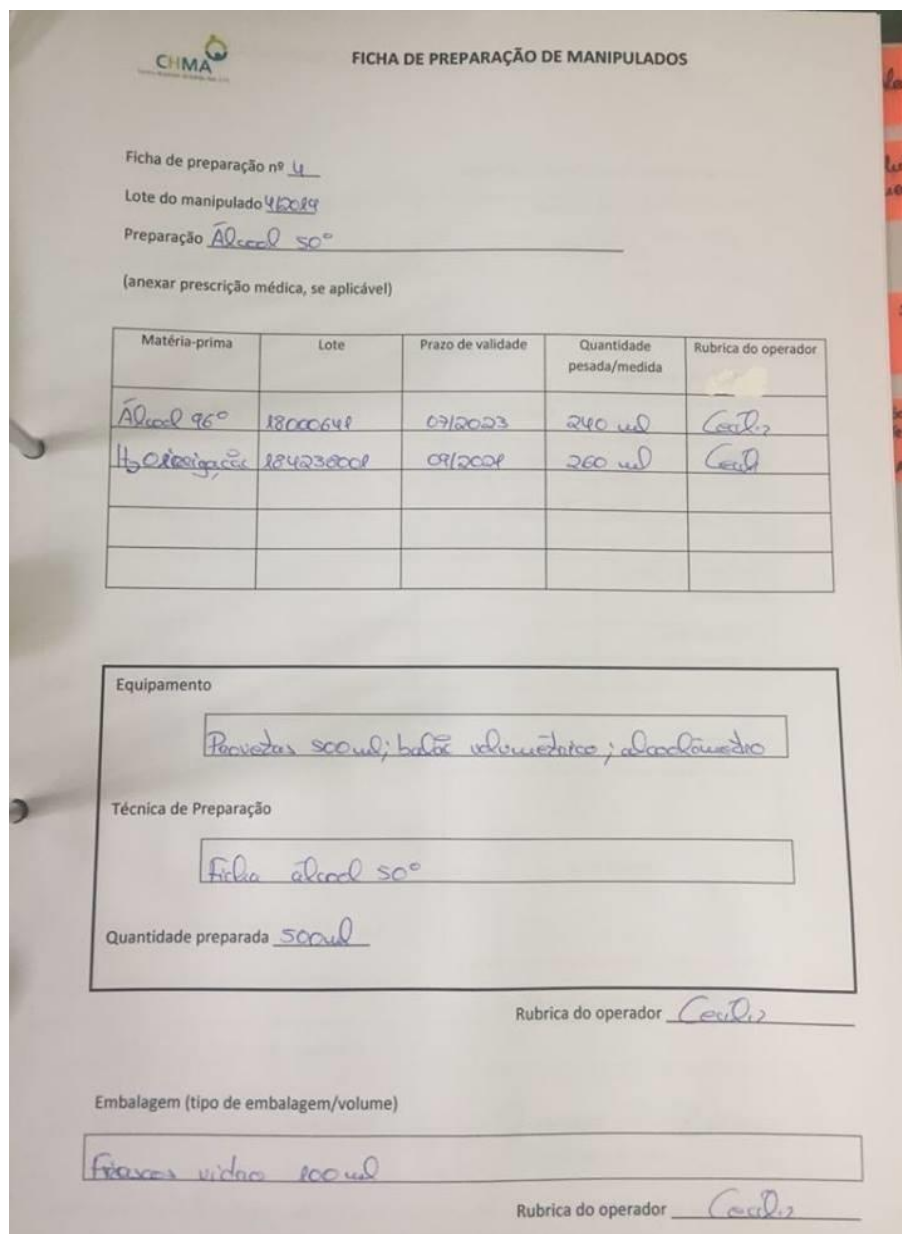 CHMA
FICHA DE PREPARAÇÃO DE MANIPULADOS
Ficha de preparação nº 4
Lote do manipulado 4/2019
Preparação Álcool 50°
(anexar prescrição médica, se aplicável)
Matéria-prima Lote Prazo de validade Quantidade pesada/medida Rubrica do operador
Álcool 96° 18000641 07/2023 240 ml
H2O irrigação 184238001 09/2021 260 ml
Equipamento
Provetas 500ml; balão volumétrico; alcoolómetro
Técnica de Preparação
Ficha álcool 50°
Quantidade preparada 500ml
Rubrica do operador
Embalagem (tipo de embalagem/volume)
Frascos vidro 100 ml
Rubrica do operador